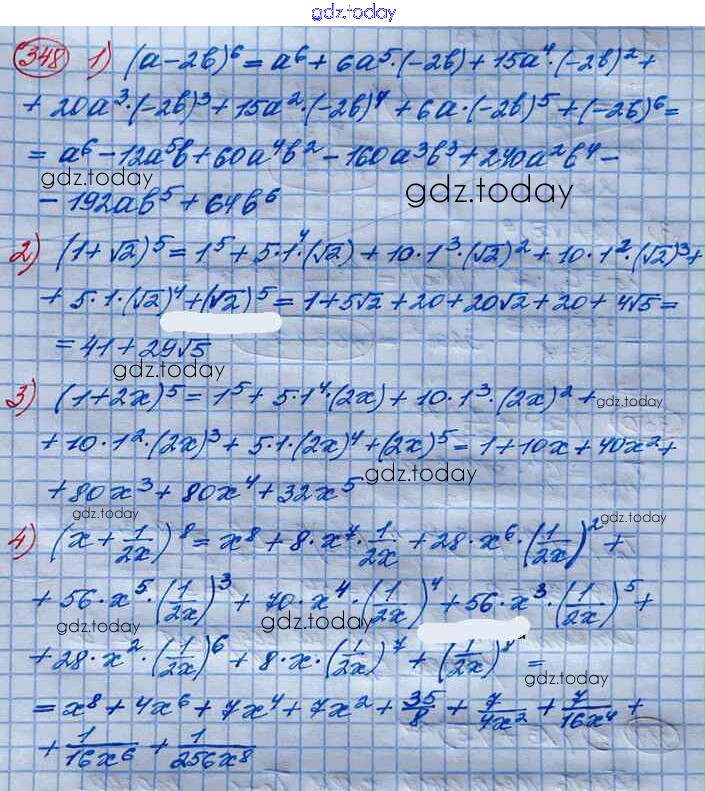 gdz.today
348 1) (a-2b)⁶ = a⁶ + 6a⁵·(-2b) + 15a⁴·(-2b)² +
+ 20a³·(-2b)³ + 15a²·(-2b)⁴ + 6a·(-2b)⁵ + (-2b)⁶ =
= a⁶ - 12a⁵b + 60a⁴b² - 160a³b³ + 240a²b⁴ -
gdz.today
gdz.today
- 192ab⁵ + 64b⁶
2) (1+√2)⁵ = 1⁵ + 5·1⁴·(√2) + 10·1³·(√2)² + 10·1²·(√2)³ +
+ 5·1·(√2)⁴ + (√2)⁵ = 1 + 5√2 + 20 + 20√2 + 20 + 4√5 =
= 41 + 29√5
gdz.today
3) (1+2x)⁵ = 1⁵ + 5·1⁴·(2x) + 10·1³·(2x)² +
gdz.today
+ 10·1²·(2x)³ + 5·1·(2x)⁴ + (2x)⁵ = 1 + 10x + 40x² +
gdz.today
+ 80x³ + 80x⁴ + 32x⁵
gdz.today
gdz.today
4) (x + 1/2x)⁸ = x⁸ + 8·x⁷·1/2x + 28·x⁶·(1/2x)² +
+ 56·x⁵·(1/2x)³ + 70·x⁴·(1/2x)⁴ + 56·x³·(1/2x)⁵ +
gdz.today
gdz.today
+ 28·x²·(1/2x)⁶ + 8·x·(1/2x)⁷ + (1/2x)⁸ =
gdz.today
= x⁸ + 4x⁶ + 7x⁴ + 7x² + 35/8 + 7/4x² + 7/16x⁴ +
+ 1/16x⁶ + 1/256x⁸